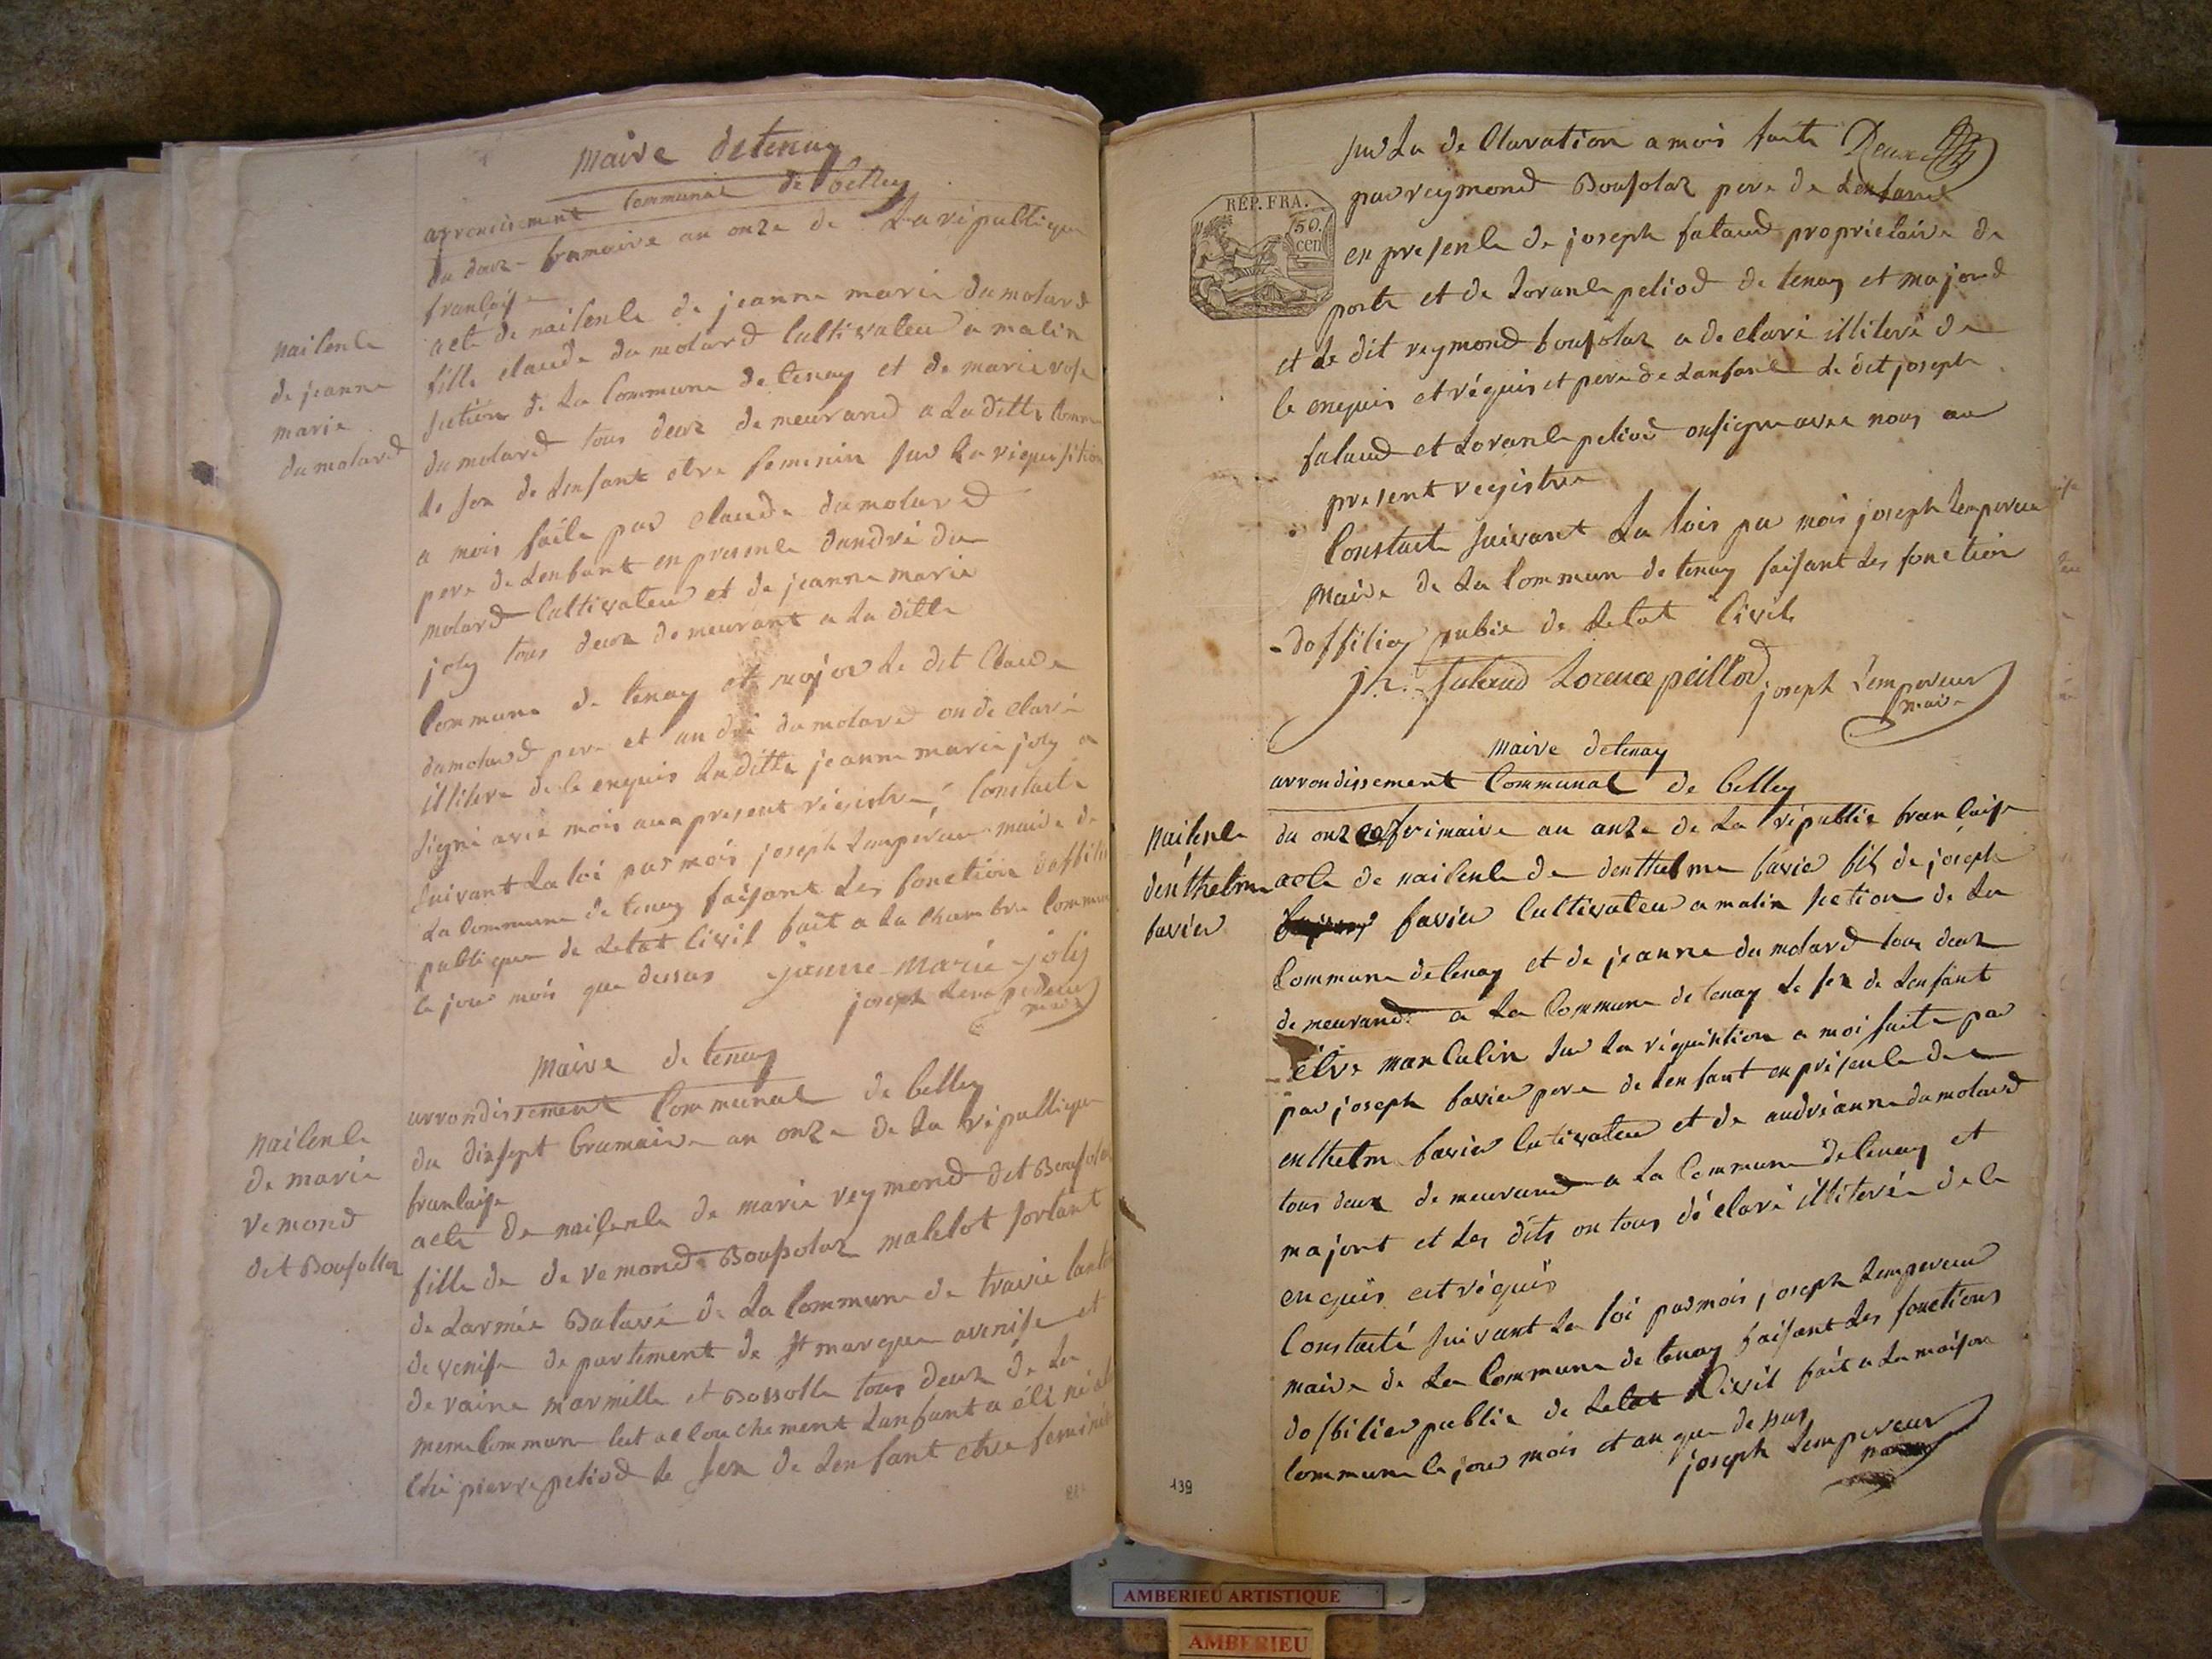 maire detenay
arrondissement Communal de belley
du deux frumaire an onze de La république
francaise
naisence
de jeanne
marie
dumolard
acte de naisence de jeanne marie dumolard
fille claude dumolard cultivateu a malin
section de La Commune de tenay et de marie rose
dumolard tous deux demeurand a La ditte Comm
le sex de Lenfant etre feminin sur La réquisition
a mois faite par claude dumolard
pere de Lenfant en presence dandré du
molard Cultivateu et de jeanne marie
joly tous deux demeurant a La ditte
Commune de tenay et major Le dit Claude
dumolard pere et andré dumolard on de claré
illitere de ce enquis La ditte jeanne marie joly a
signé avec mois aux present régistre, Constaté
suivant La loi par mois joseph Lempéreur maire de
La Commune de tenay faisant Les fonction doffici
publique de Letat Civil fait a La chambre Commu
le jour mois que dessus jeanne marie joly
joseph Lempereur
maire
maire de tenay
arrondissement Communal de belley
du dixsept brumaire an onze de La république
francaise
naisence
de marie
remond
dit Bousollar
acte de naisence de marie reymond dit Bousolar
fille de de remond Bousolar matelot sortant
de Larmée Batave de La Commune de
de venise departement de St marque avenise et
de raine marmille et Bossolle tous deux de La
meme Commune Lenfant a été né
ché pierre peliod Le sex de Lenfant etre feminin
sur La de Claration a mois faite Deux
RÉP. FRA.
50.
cen
par reymond Bousolar pere de Lenfant
en presence de joseph falaud proprietaire de
porte et de Lorance peliod de tenay et majord
et Le dit reymond bousolar a de claré illiteré de
ce enquis et réquis et pere de Lanfant Le dit joseph
falaud et Lorance peliod on signe avec nous au
present registre
Constaté suivant La lois par mois joseph Lempereur
maire de La Commun de tenay faisant Les fonction
doffilier publie de Letat Civil
jh. falaud Lorence peillod joseph Lempereur
maire
maire detenay
arrondissement Communal de belley
naisence
denthelme
favier
du onze frimaire an onze de La républie francaise
acte de naisence de denthelme favier fils de joseph
favier Cultivateu a malix section de La
Commune detenay et de jeanne dumolard tous deux
demeurand a La Commune de tenay Le sex de Lenfant
etre masculin sur La réquisition a moi faite par
par joseph favier pere de Lenfant en présence de
enthelm favier Cutivateu et de andréanne dumolard
tous deux demeurand a La Commune detenay et
majort et Les dits on tous déclaré illiterée de ce
enquis et réquis
Constaté suivant La loi par mois joseph Lempereur
maire de La Commune de tenay faisant Les fonctions
dofficier public de Letat Civil fait a La maison
Commune le jour mois et an que dessus
joseph Lempereur
139
AMBERIEU ARTISTIQUE
AMBERIEU